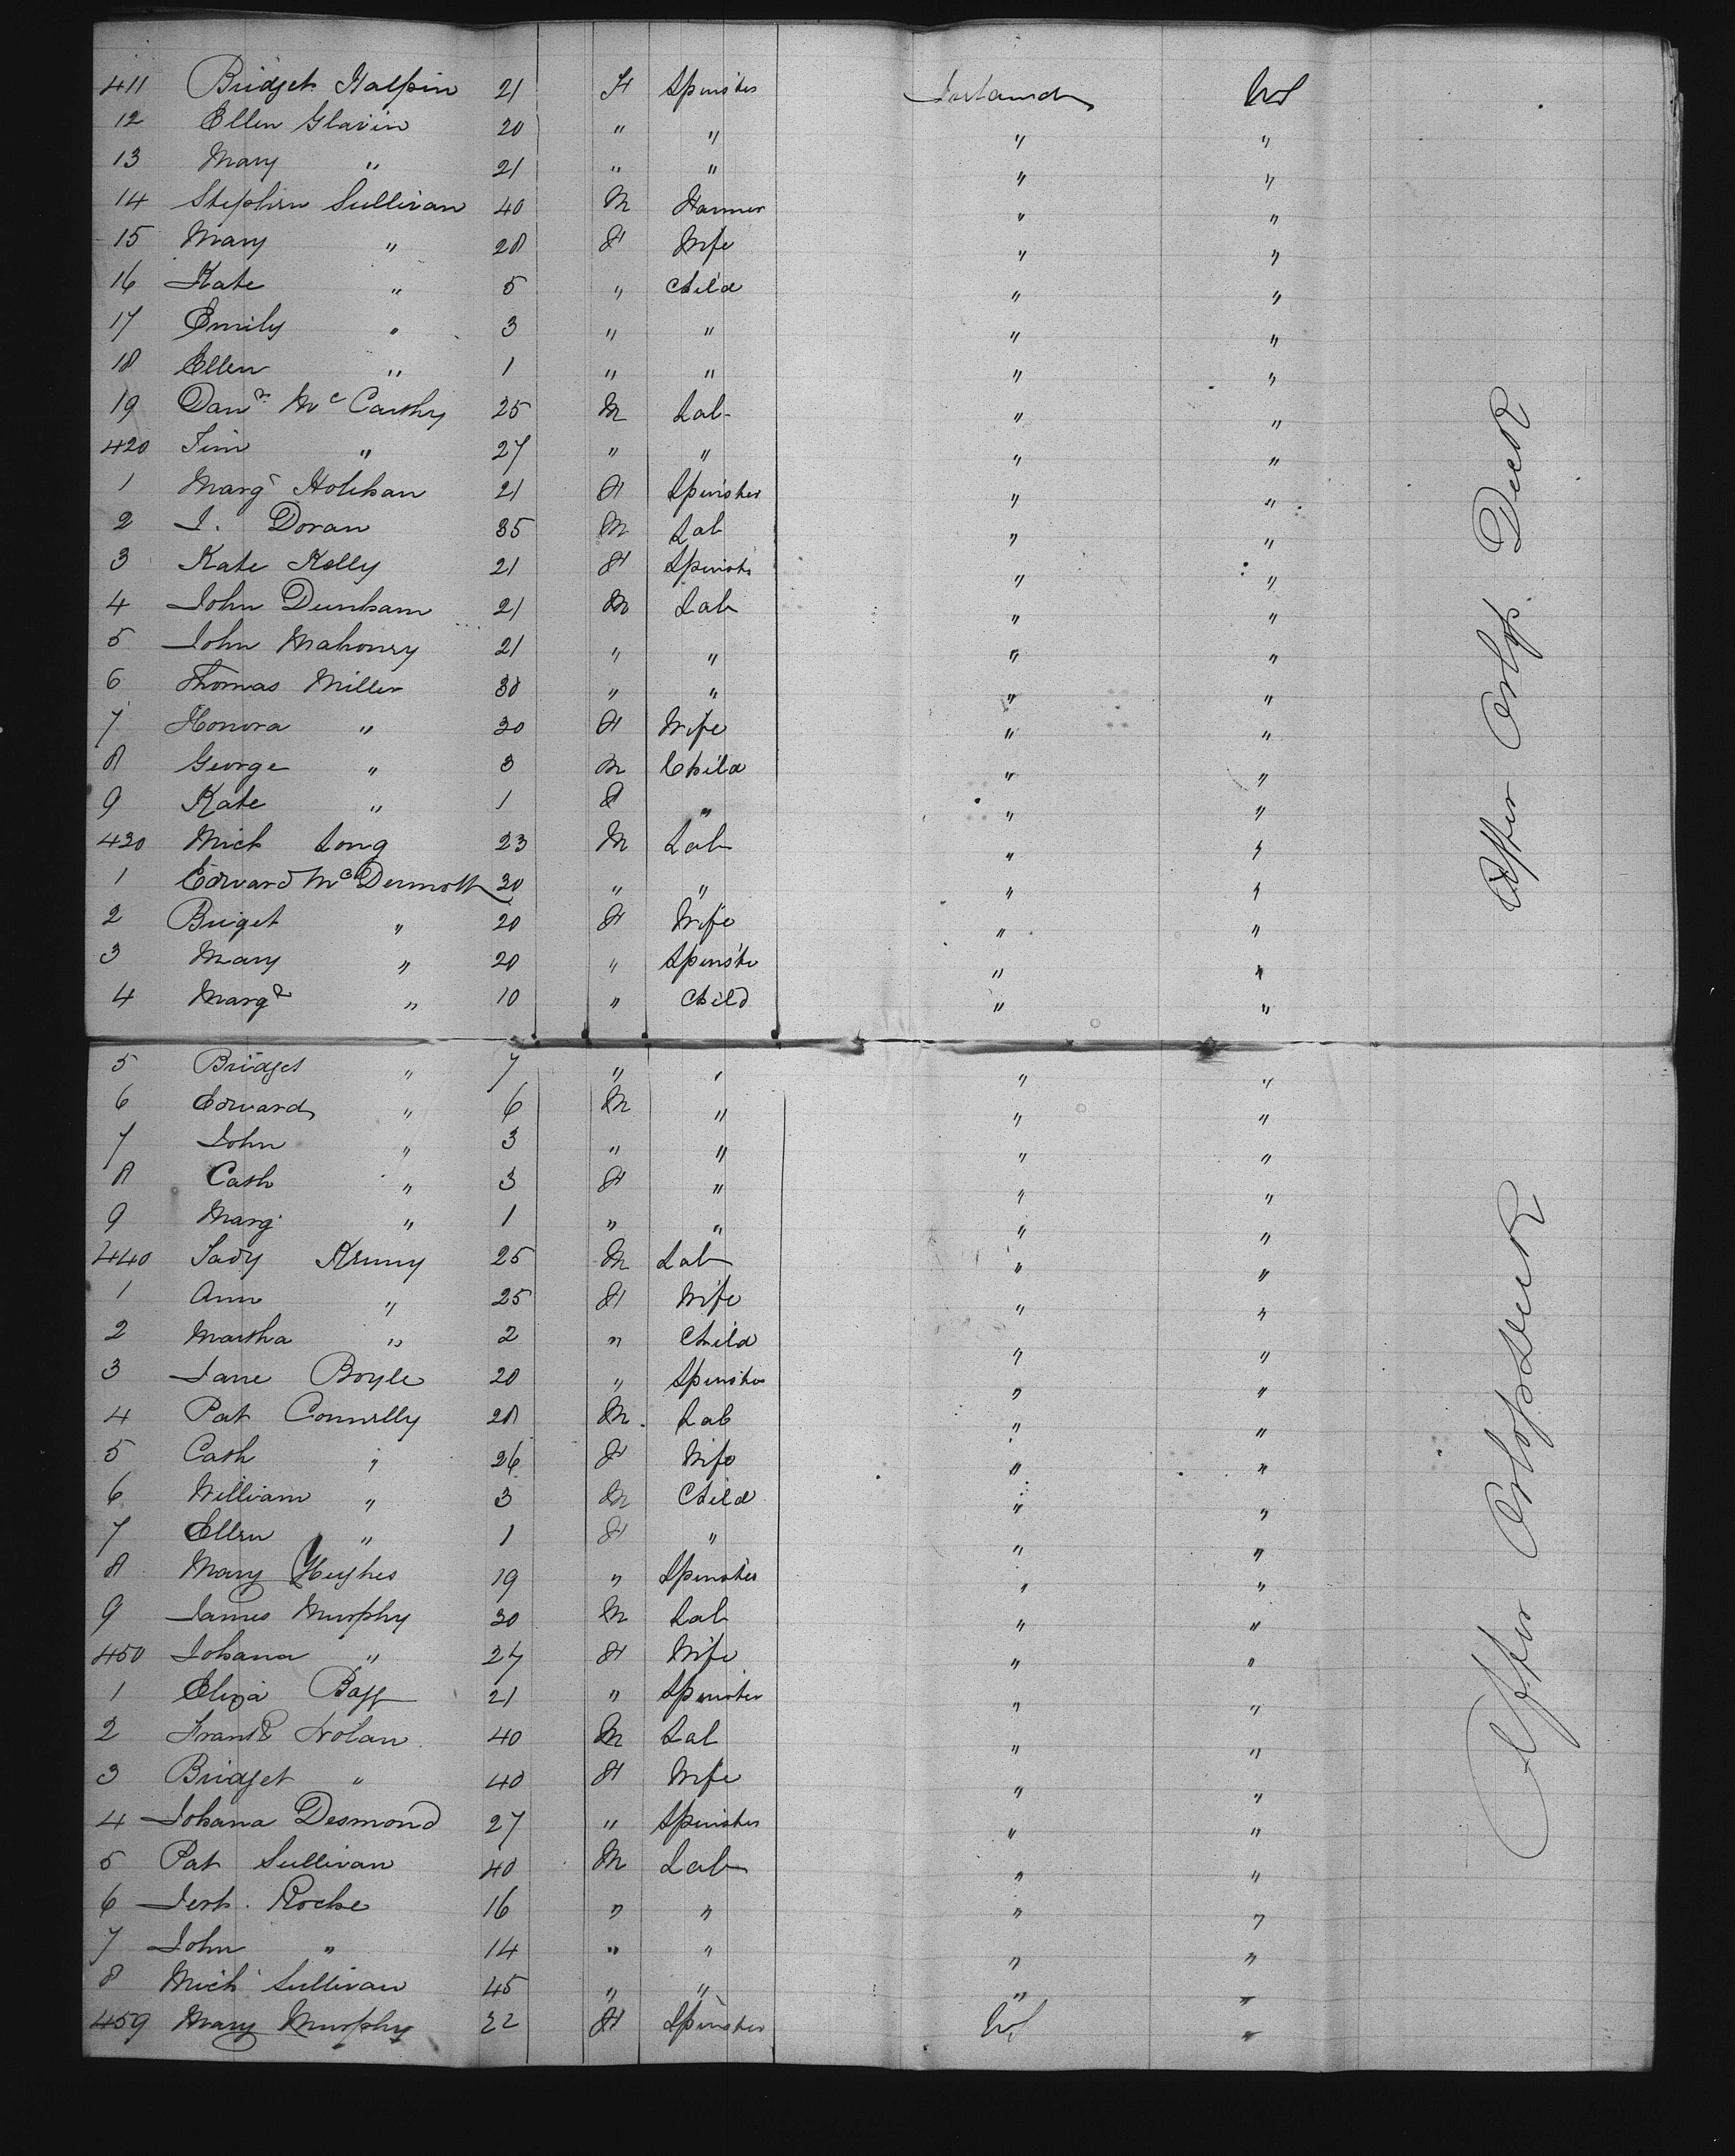 411 Bridget Halpin 21 F Spinster Ireland US
12 Ellen Glavin 20 " " " "
13 Mary " 21 " " " "
14 Stephen Sullivan 40 M Farmer " "
15 Mary " 28 F Wife " "
16 Kate " 5 " Child " "
17 Emily " 3 " " " "
18 Ellen " 1 " " " "
19 Danl McCarthy 25 M Lab " "
420 Tim " 27 " " " "
1 Margt Holihan 21 F Spinster " "
2 J. Doran 35 M Lab " "
3 Kate Kelly 21 F Spinste " "
4 John Dunham 21 M Lab " "
5 John Mahoney 21 " " " "
6 Thomas Miller 38 " " " "
7 Honora " 30 F Wife " "
8 George " 3 M Child " "
9 Kate " 1 F " " "
430 Mick Long 23 M Lab " "
1 Edward McDermott 30 " " " "
2 Briget " 20 F Wife " "
3 Mary " 20 " Spinste " "
4 Margt " 10 " Child " "
5 Bridget " 7 " " " "
6 Edward " 6 M " " "
7 John " 3 " " " "
8 Cath " 3 F " " "
9 Marg " 1 " " " "
440 25 M Lab " "
1 Ann " 25 F Wife " "
2 Martha " 2 " Child " "
3 Jane Boyle 20 " Spinster " "
4 Pat Connelly 28 M Lab " "
5 Cath " 26 F Wife " "
6 William " 3 M Child " "
7 Ellen " 1 F " " "
8 Mary Hughes 19 " Spinster " "
9 James Murphy 30 M Lab " "
450 Johana " 27 F Wife " "
1 Eliza 21 " Spinster " "
2 Frank Nolan 40 M Lab " "
3 Bridget " 40 F Wife " "
4 Johana Desmond 27 " Spinster " "
5 Pat Sullivan 40 M Lab " "
6 Jerh. Roche 16 " " " "
7 John " 14 " " " "
8 Mich Sullivan 45 " " " "
459 Mary Murphy 22 F Spinster US "
After Orlop Deck
After Orlop Deck